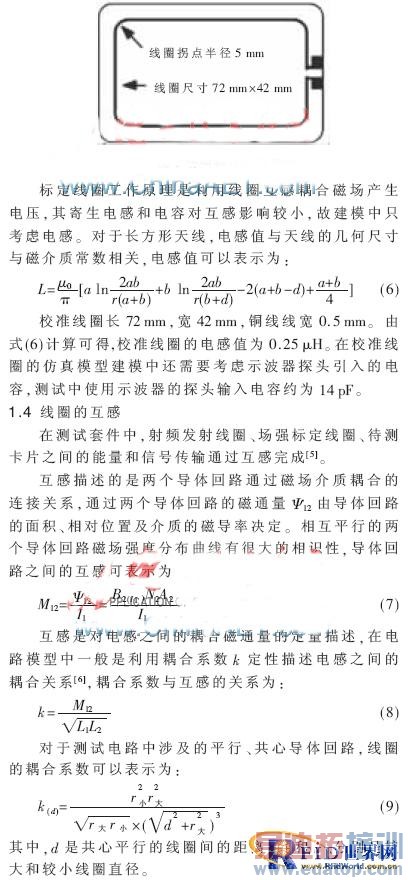 线圈拐点半径 5 mm
线圈尺寸 72 mm×42 mm
标定线圈工作原理是利用线圈互感耦合磁场产生
电压,其寄生电感和电容对互感影响较小,故建模中只
考虑电感。对于长方形天线,电感值与天线的几何尺寸
与磁介质常数相关,电感值可以表示为:
L=μ₀/π[a ln 2ab/r(a+b)+b ln 2ab/r(b+d)-2(a+b-d)+a+b/4] (6)
校准线圈长 72 mm,宽 42 mm,铜线线宽 0.5 mm。由
式(6)计算可得,校准线圈的电感值为 0.25 μH。在校准线
圈的仿真模型建模中还需要考虑示波器探头引入的电
容,测试中使用示波器的探头输入电容约为 14 pF。
1.4 线圈的互感
在测试套件中,射频发射线圈、场强标定线圈、待测
卡片之间的能量和信号传输通过互感完成[5]。
互感描述的是两个导体回路通过磁场介质耦合的
连接关系,通过两个导体回路的磁通量 Ψ12 由导体回路
的面积、相对位置及介质的磁导率决定。相互平行的两
个导体回路磁场强度分布曲线有很大的相识性,导体回
路之间的互感可表示为
M12=Ψ12/I1= (7)
互感是对电感之间的耦合磁通量的定量描述,在电
路模型中一般是利用耦合系数 k 定性描述电感之间的
耦合关系[6],耦合系数与互感的关系为:
k=M12/√L1L2 (8)
对于测试电路中涉及的平行、共心导体回路,线圈
的耦合系数可以表示为:
k(d)=r²小r²大/√r大r小×(√d²+r²大)³ (9)
其中,d 是共心平行的线圈间的距
大和较小线圈直径。
RFID世界网